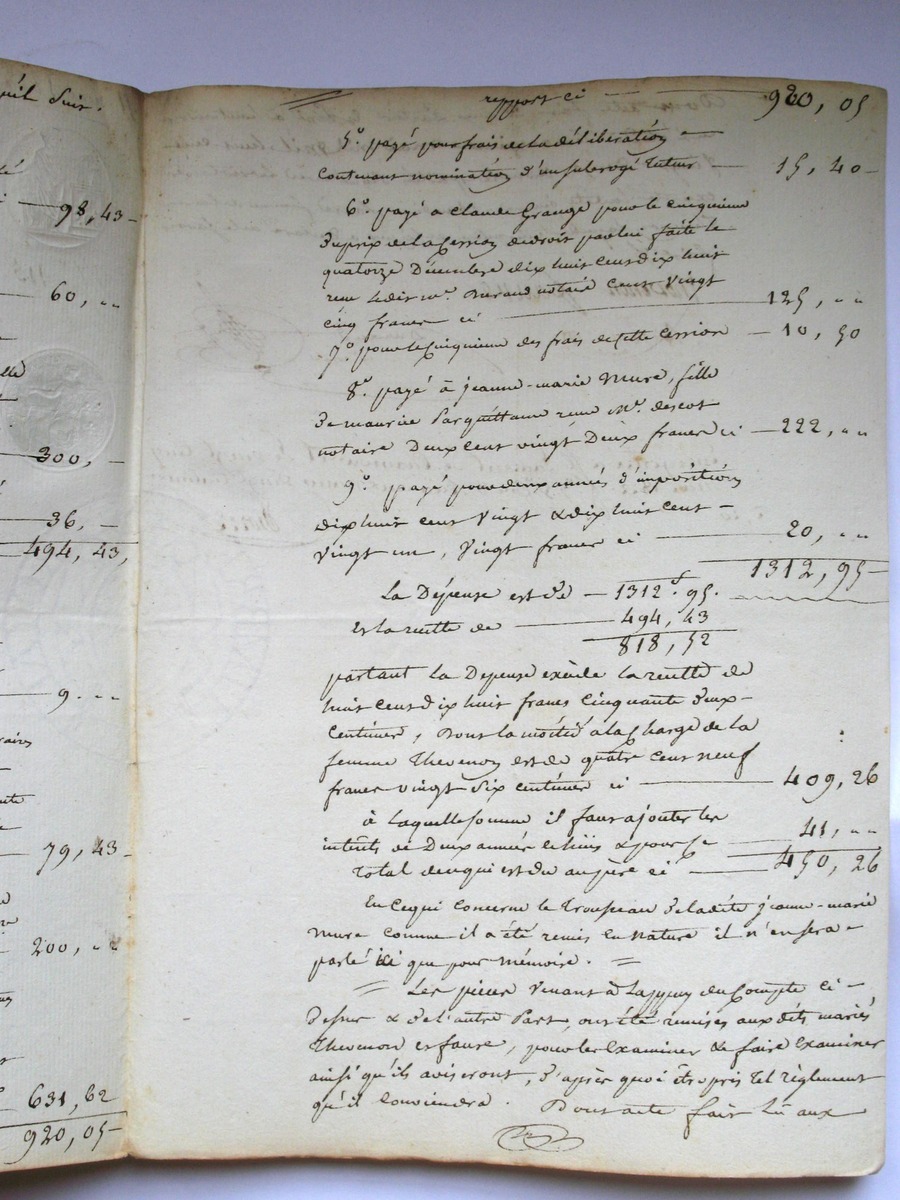 qu'il suit.
98, 43
60, "
300, —
36, —
494, 43,
9. "
79, 43
200, "
631, 62
920, 05
report ci 920, 05
5°. payé pour frais de la déliberation
contenant nomination d'un subrogé tuteur — 15, 40
6°. payé a Claude Grange pour le cinquieme
du prix de la Cession de droit par lui faite le
quatorze Décembre dix huit cent dix huit
reçue ledit me. Durand notaire cent vingt
cinq francs ci 125, "
7°. pour le Cinquieme des frais de cette Cession — 10, 50
8°. payé à jeanne-marie Mure, fille
de maurice par quittance reçue Me. descot
notaire Deux cent vingt Deux francs ci — 222, "
9°. payé pour deux années d'imposition
dix huit cent vingt & dix huit cent
vingt un, vingt francs ci 20, "
1312, 95
La Dépense est de — 1312f. 95.
Et la recette de 494, 43
818, 52
partant la Depense exède la recette de
huit cent dix huit francs cinquante deux
Centimes, Dont la moitié à la Charge de la
femme Thevenon est de quatre cent neuf
francs vingt six centimes ci 409, 26
à laquelle somme il faut ajouter les
intérêts de Deux années & pour ce 41, "
total de ce qui est du au père ci 450, 26
En ce qui concerne le trousseau de la dite jeanne-marie
Mure comme il a été remis en nature il n'en sera
parlé ici que pour mémoire. =
= Les pièces venant à l'appuy du Compte ci-
Dessus & de l'autre Part, ont été remises aux dits mariés
Thevenon et faure, pour les Examiner & faire Examiner
ainsi qu'ils aviseront, d'après quoi être pris tel règlement
qu'il conviendra. Dont acte fait lu aux